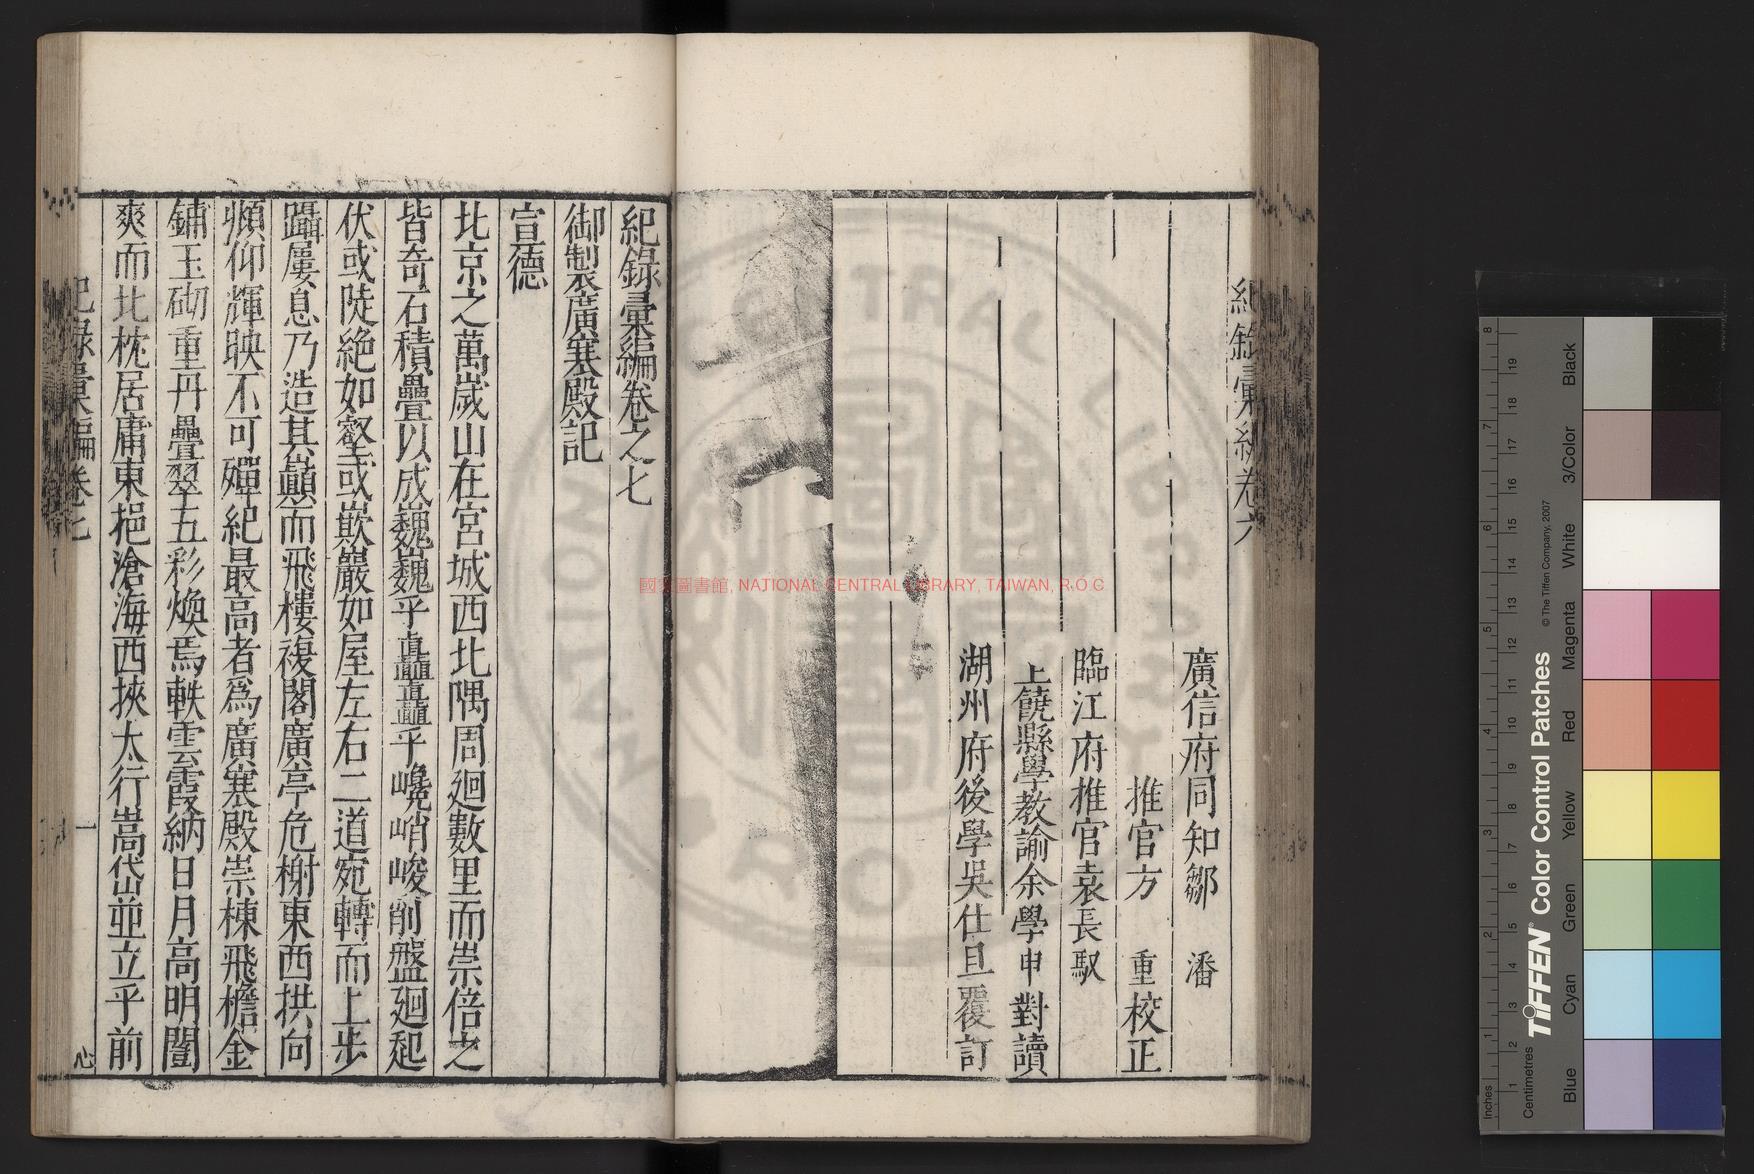 紀錄彙編卷六
廣信府同知鄒 潘
推官方 重校正
臨江府推官袁長馭
上饒縣學教諭余學申對讀
湖州府後學吳仕旦覆訂
紀錄彙編卷之七
御製廣寒殿記
宣德
北京之萬歲山在宮城西北隅周廻數里而崇倍之
皆奇石積疊以成巍巍乎矗矗乎巉峭峻削盤廻起
伏或陡絕如壑或嵌巖如屋左右二道宛轉而上步
躡屢息乃造其巔而飛樓複閣廣亭危榭東西拱向
頫仰輝映不可殫紀最高者爲廣寒殿崇棟飛檐金
鋪玉砌重丹疊翠五彩煥焉軼雲霞納日月高明闓
爽而北枕居庸東挹滄海西挾太行嵩岱並立乎前
紀錄彙編卷七
一
心
國家圖書館, NATIONAL CENTRAL LIBRARY, TAIWAN, R.O.C
TIFFEN Color Control Patches
© The Tiffen Company, 2007
Inches
Centimetres
Blue
Cyan
Green
Yellow
Red
Magenta
White
3/Color
Black